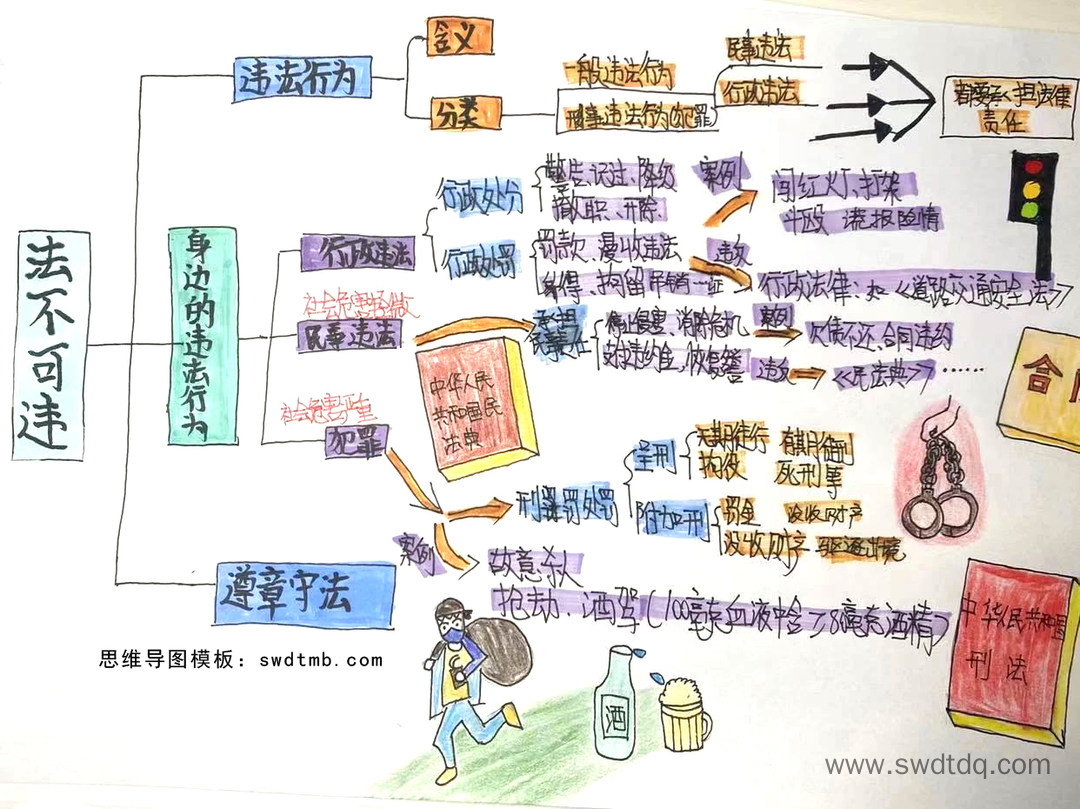 法不可违
违法行为
含义
分类
一般违法行为
刑事违法行为(犯罪)
民事违法
行政违法
都要承担法律
责任
身边的违法行为
行政违法
行政处分
警告、记过、降级
撤职、开除
行政处罚
罚款、没收违法
拘留
案例
闯红灯、打架
斗殴 谎报险情
违反
行政法律:如《道路交通安全法》
社会危害轻微
民事违法
承担
民事责任
停止侵害、消除危机
支付违约金、恢复名誉
案例
欠债不还、合同违约
违反
《民法典》……
中华人民
共和国民
法典
合同
社会危害严重
犯罪
刑罚处罚
主刑
无期徒刑 有期徒刑
拘役 死刑
附加刑
罚金 没收财产
没收财产 驱逐出境
案例
故意杀人
抢劫、酒驾(100毫克血液中含≥8毫克酒精)
遵章守法
酒
中华人民共和国
刑法
思维导图模板:swdtmb.com
www.swdtdq.com